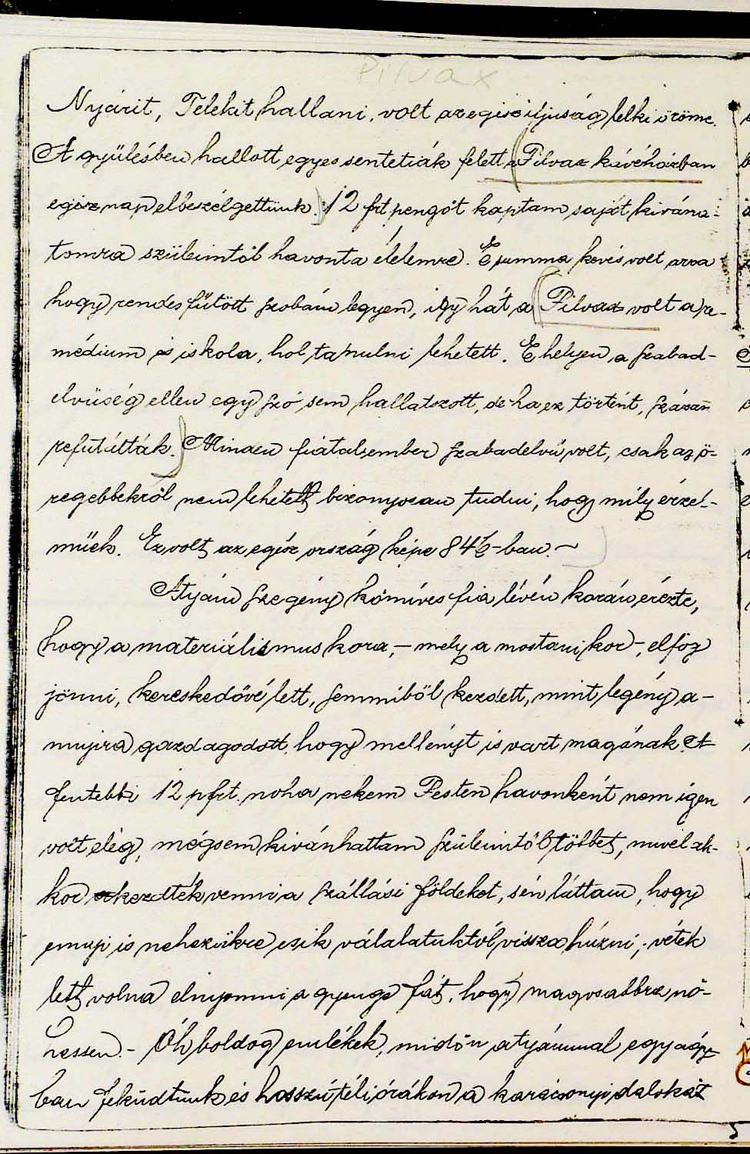 Pilvax
Nyárit, Telekit hallani, volt az egész ifjuság lelki öröme.
A gyülésben hallott egyes sentetiák felett a Pilvax kávéházban
egész nap elbeszélgettünk. 12 frt pengőt kaptam saját kivána-
tomra szüleimtől havonta élelemre. E summa kevés volt arra
hogy rendes fűtött szobám legyen, igy hát a Pilvax volt a re-
médium és iskola, hol tanulni lehetett. E helyen a szabad-
elvüség ellen egy szó sem hallatszott, de ha ez történt, százan
refutálták. Minden fiatal ember szabadelvü volt, csak az ö-
regebbekről nem lehetett bizonyosan tudni, hogy mily érzel-
müek. Ez volt az egész ország képe 84½-ban. –
Atyám szegény kőmíves fia lévén korán érezte,
hogy a materiálismus kora, – mely a mostani kor –, elfog
jönni, kereskedővé lett, semmiből kezdett, mint legény a-
nnyira gazdagodott, hogy mellényt is vart magának. A
fentebbi 12 pfrt. noha nekem Pesten havonként nem igen
volt elég, mégsem kivánhattam szüleimtől többet, mivel ak-
kor kezdték venni a szállási földeket, s én láttam, hogy
ennyi is nehezükre esik válalatuktól vissza húzni, – vétek
lett volna elnyomni a gyenge fát, hogy magosabbra nö-
hessen. – Oh boldog emlékek, midőn atyámmal egy ágy-
ban feküdtünk és hosszú téli órákon a karácsonyi dalokat